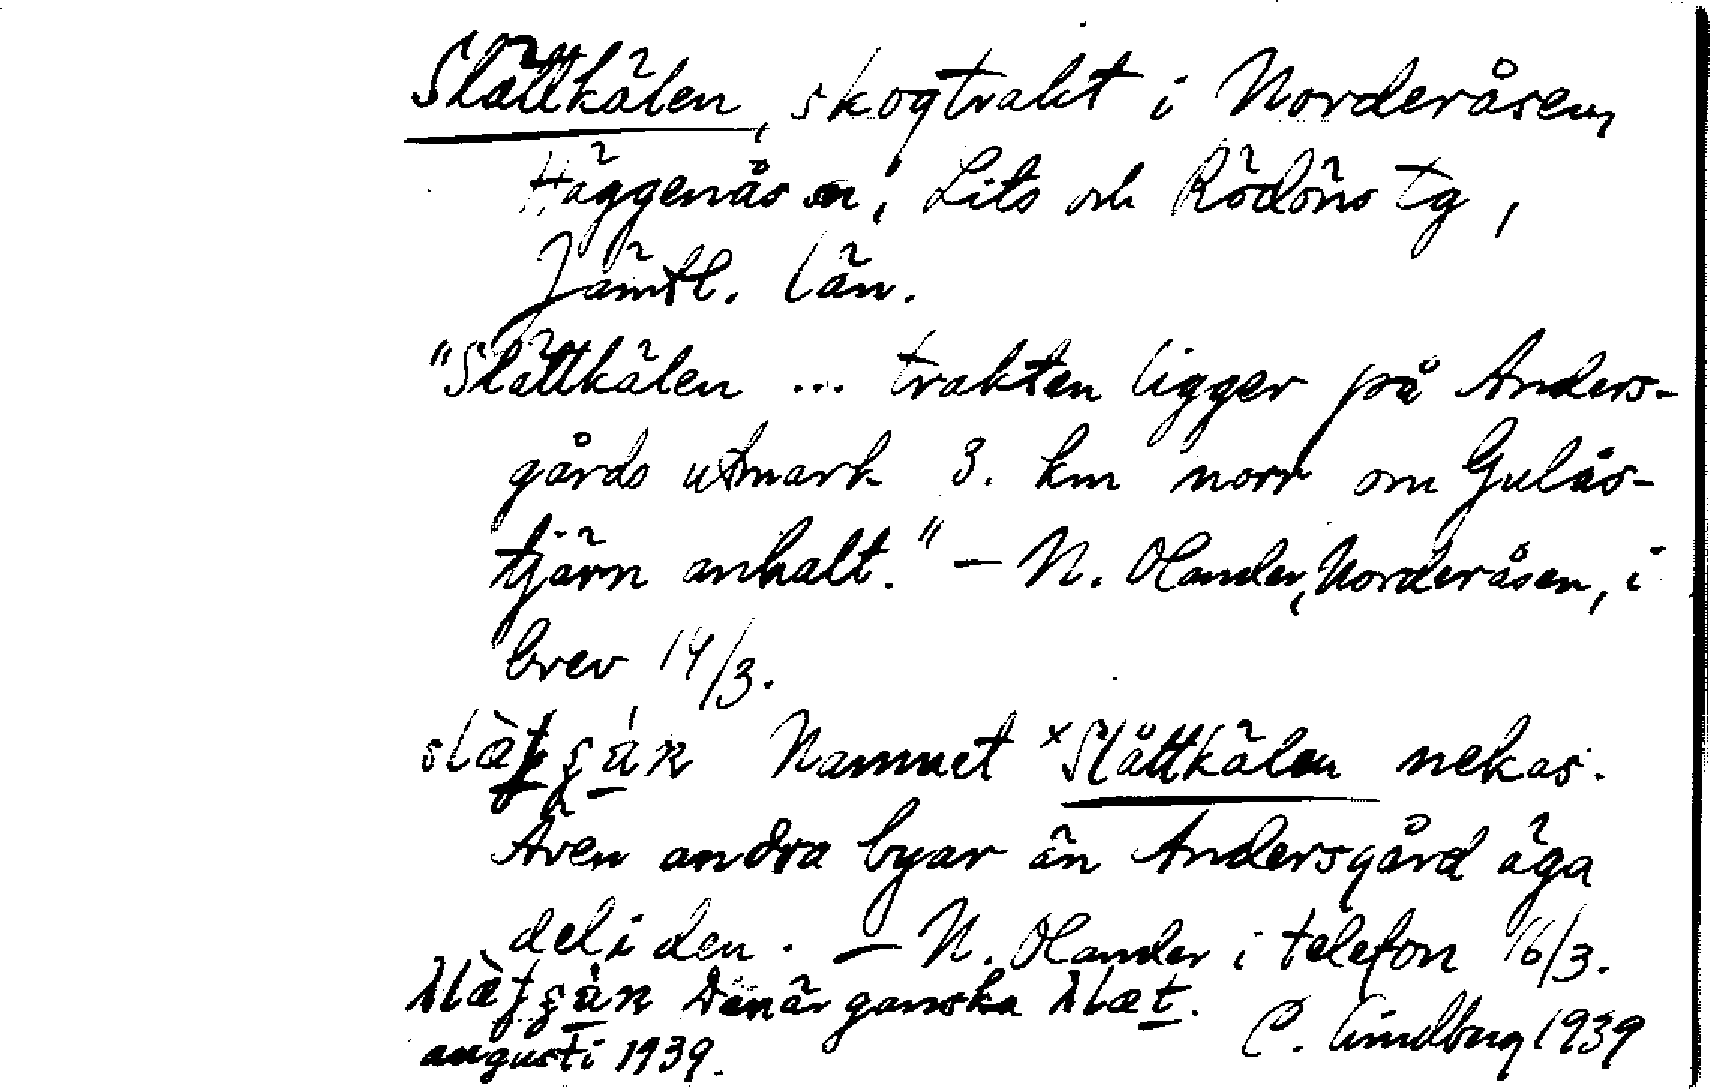 Slättkälen, skogtrakt i Norderåsen,
Häggenås sn, Lits och Rödöns tg,
Jämtl. län.
"Slättkälen ... trakten ligger på Anders-
gårds utmark 3. km norr om Gulås-
tjärn anhalt." – N. Olander, Norderåsen, i
brev 14/3.
Namnet ˣSlåttkälen nekas.
Även andra byar än Andersgård äga
del i den. – N. Olander i telefon 16/3.
Den är ganska
augusti 1939. C. Lindberg 1939